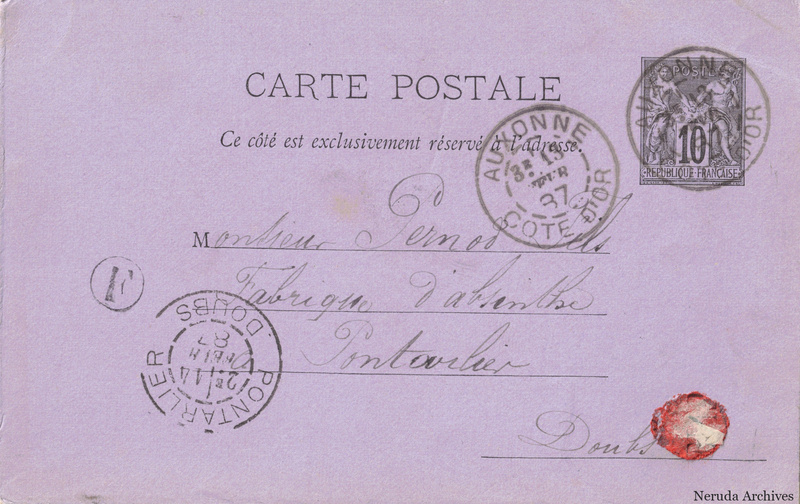 CARTE POSTALE
Ce côté est exclusivement réservé à l'adresse.
POSTES
10
REPUBLIQUE FRANÇAISE
AUXONNE
COTE D'OR
AUXONNE
3E 13
FEVR
87
COTE D'OR
Monsieur Pernod fils
Fabrique d'absinthe
Pontarlier
Doubs
F
PONTARLIER
2E 14
FEVR
87
DOUBS
Neruda Archives